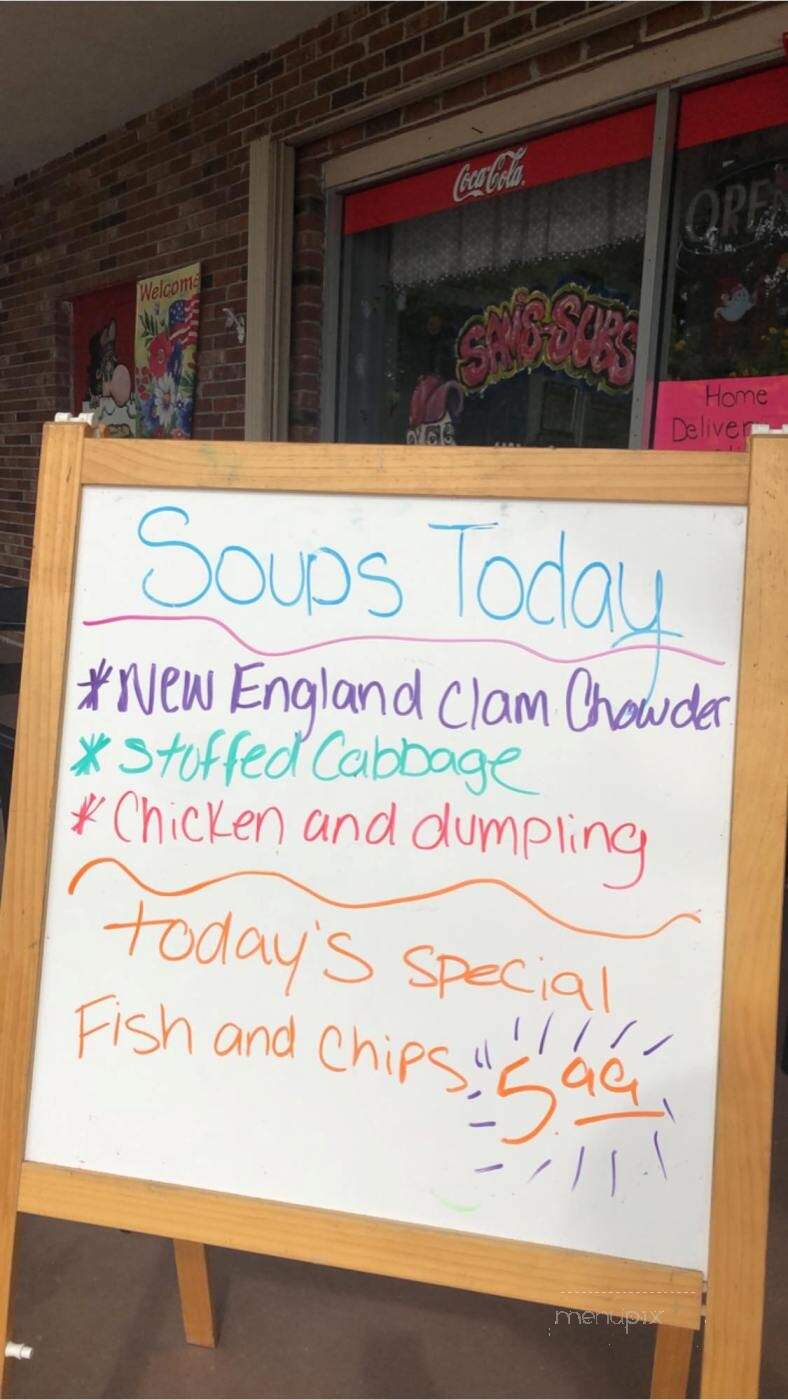 Coca-Cola
OPEN
Welcome
SAM'S SUBS
Home
Deliver
Soups Today
*New England Clam Chowder
*Stuffed Cabbage
*Chicken and dumpling
today's special
Fish and Chips 5.99
menupix